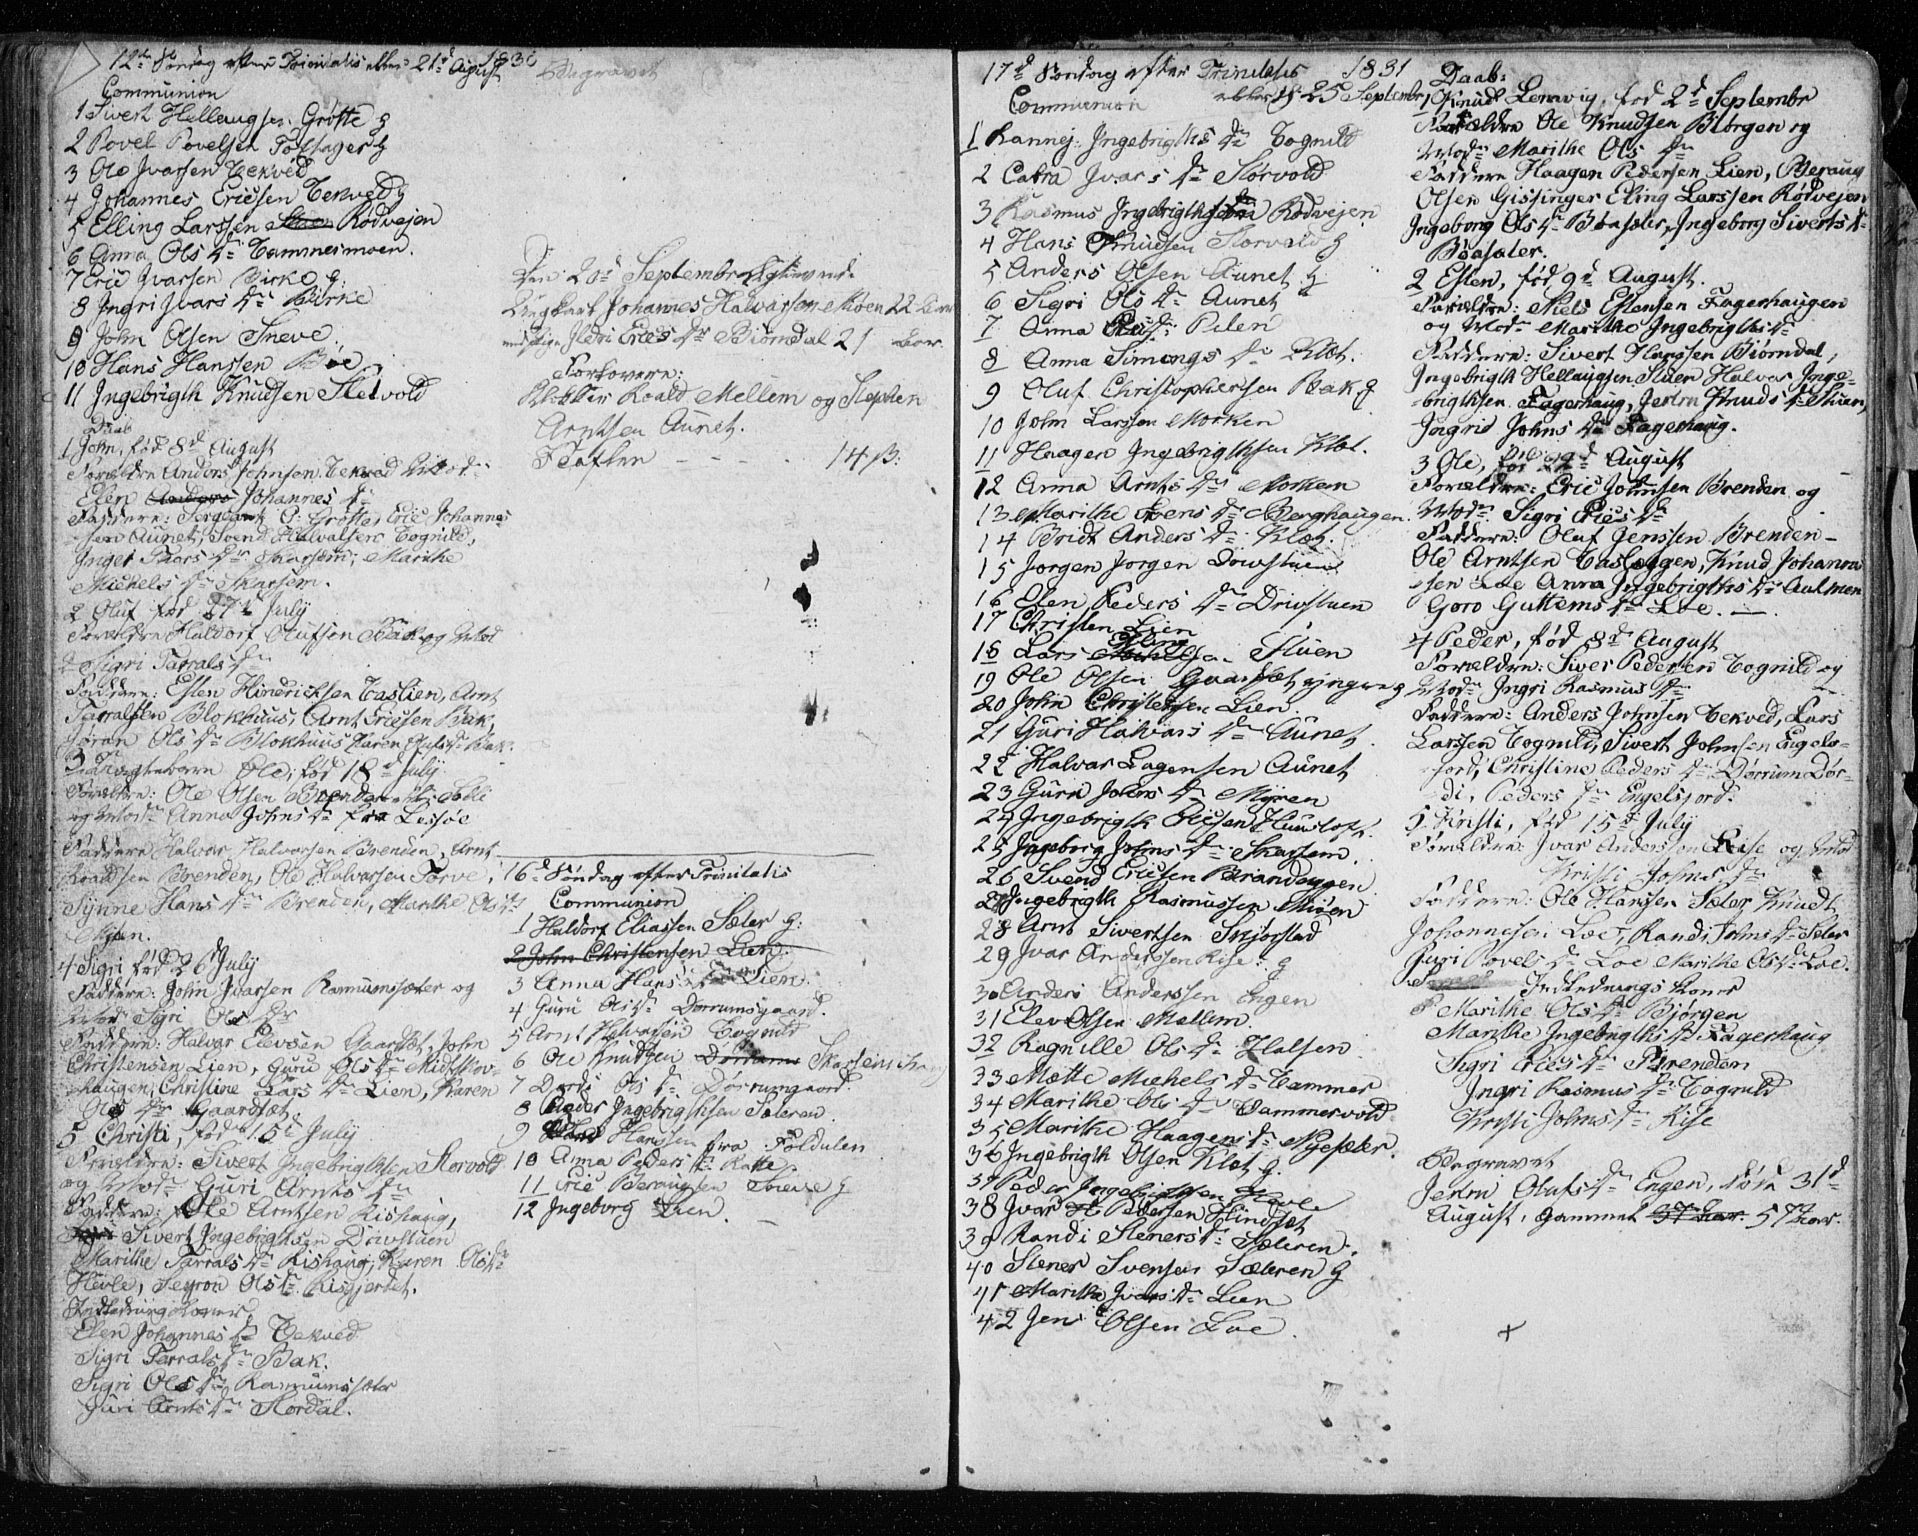 12te Søndag efter Trinitatis eller 21d August 1830
Communion
1 Sivert Hellaugsen Grøtte g
2 Povel Povelsen Toftager g
3 Ole Jvarsen Tekved
4 Johannes Ericsen Tekved g
5 Elling Larssen Rodvejen
6 Anna Ols Dr Tammesmoen.
7 Eric Jvarsen Birke g.
8 Ingri Jvars Dr Birke
9 John Olsen Sneve
10 Hans Hanssen Boe
11 Ingebrigth Knudsen Sletvold
Daab
1 John, fød 8d August
Forældre Anders Johnsen Tekved Mod:
Elen Anders Johannes Dr
Faddere: Sergeant O: Grøtte, Eric Johannes
sen Aunet, Svend Halvalsen Tognild,
Inger Thors Dr Skarsem, Marithe
Michels Dr Skarsem.
2 Oluf fød 27d July
Forældre Haldorf Olufsen Bak og Mod
Sigri Tarrals Dr
Faddere: Eslen Hindrichsen Taslien, Arnt
Tarralsen Blokhuus, Arnt Ericsen Bak,
Gøran Ols Dr Blokhuus Karen Olufs Dr Bak.
3 Ole, fød 18d July
Forældre: Ole Olsen
og Mod: Anna Johns Dr fra Lessøe
Faddere Halvar Halvarsen Brenden, Arnt
Brenden, Ole Halvarsen Torve,
Synne Hans Dr Brenden, Marithe Ols Dr
Myren.
4 Sigri fød 26 July
Faddere: John Jvarsen Rasmussæter og
Mod: Sigri Ols Dr
Faddere: Halvar Elevsen Gaardsæt, John
Christensen Lien, Guru Ols Dr Midtskov-
haugen, Christine Lars Dr Lien, Karen
Ols Dr Gaardsæt
5 Christi, fød 15d July
Forældre: Sivert Ingebrigthsen Storvold
og Mod: Guri Arnts Dr
Faddere: Ole Arntsen Rishaug,
Sivert Ingebrigthsen Drivstuen
Marithe Tarrals Dr Rishaug, Karen Ols Dr
Hevle, Seyron Ols Dr Risgjerdet.
Indlednings koner
Elen Johannes Dr Tekved
Sigri Tarrals Dr Bak.
Sigri Ols Dr Rasmussæter
Guri Arnts Dr Stordal.
Begravet
Den 20d Septembr
Ungkarl Johannes Halvarson Moen 22
Ildri Erics Dr Biørndal 21 Aar
Forlovere:
Klokker Roald Mellem og Stephen
Arntsen Aunet.
Taften - - - 14 ß.
16d Søndag efter Trinitatis
Communion
1 Haldorf Eliassen Sæter g:
2 John Christensen Lien g:
3 Anna Hans Dr Lien
4 Guru Ols Dr Dorrumsgaard.
5 Arnt Halvarsen Tognild
6 Ole Knudsen
7 Dordi Ols Dr Dørrumgaard
8 Peder Ingebrigthsen Sæteren
9 Hanssen fra Foldalen
10 Anna Peders Dr
11 Eric Beraugsen Sneve g
12 Ingeborg Lien
17d Søndag efter Trinitatis 1831
eller d 25 Septembr
Communion
1 Rannej: Ingebrigths Dr Tognild
2 Catra Jvars Dr Storvold
3 Rasmus Ingebrigthsen Rodvejen
4 Hans Knudsen Storvold g
5 Anders Olsen Aunet g
6 Sigri Ols Dr Aunet
7 Anna
8 Anna Simengs Dr Klæt.
9 Oluf Christophersen Bak g
10 John Larssen Morken
11 Haagen Ingebrigthsen Klæt.
12 Anna Arnts Dr Morken
13 Marithe Svens Dr Berghaugen.
14 Bridt Anders Dr Klæt.
15 Jorgen Jorgen Drivstuen
16 Elen Peders Dr Drivstuen
17 Christen Lien
18 Lars Eling Stuen
19 Ole Olsen Gaardsæt
20 John Christensen Lien
21 Guri Halvars Dr Aunet
22 Halvar Lagensen Aunet
23 Guru Johns Dr Myren
24 Ingebrigth Ericsen
25 Ingeborg Johns Dr Skarsem.
26 Svend Ericsen Brandeggen
27 Ingebrigth Rasmussen Moen
28 Arnt Sivertsen Skjorstad
29 Jvar Anderssen Rise: g
30 Anders Anderssen Engen
31 Elev Olsen Mellem
32 Ragnille Ols Dr Halsen
33 Mætte Michels Dr Tammer
34 Marithe Ols Dr Tammervold
35 Marithe Haagens Dr Nyesæter.
36 Ingebrigth Olsen Klæt g.
37 Peder Ingebrigthsen Hevle
38 Jvar Pedersen Hindsæt
39 Randi Steners Dr Sæteren.
40 Stener Svensen Sæteren g
41 Marithe Jvars Dr Lien
42 Jens Olsen Loe
Daab:
1 Knudt Lemvig, fød 2d Septembr
Forældre Ole Knudsen Biørgen og
Mod: Marithe Ols Dr
Faddere Haagen Pedersen Lien, Beraug
Olsen Gissinger Eling Larssen Rodvejen
Ingeborg Ols Dr Bøasæter, Ingeborg Siverts Dr
Bøasæter.
2 Eslen, fød 9d August.
Forældre: Niels Eslensen Fagerhaugen
og Mod: Marithe Ingebrigths Dr
Faddere: Sivert Hanssen Biørndal,
Ingebrigth Hellaugsen Stuen Halvar Inge-
brigthsen Fagerhaug, Jertru Knuds Dr Stuen,
Ingrid Johns Dr Fagerhaug.
3 Ole, fød August
Forældre: Eric Johnsen Brenden og
Mod: Sigri Erics Dr
Faddere: Oluf Jenssen Brenden-
Ole Arntsen Taslæggen, Knud Johanne
sen Loe Anna Ingebrigths Dr Aalmen
Goro Guttems Dr Loe.
4 Peder, fød 8d August
Forældre: Siver Pedersen Tognild og
Mod: Ingri Rasmus Dr
Faddere: Anders Johnsen Tekved, Lars
Larssen Tognild, Sivert Johnsen Engels-
jord, Christine Peders Dr Dørrum Dor-
di, Peders Dr Engelsjord.
5 Kristi, fød 15d July
Forældre: Jvar Anderssen Rise og Mod
Kristi Johns Dr
Faddere: Ole Hanssen Sæter Knudt
Johannesen Loe, Randi Johns Dr Sæter
Guri Povels Dr Loe Marithe Ols Dr Loe.
Indlednings koner
Marithe Ols Dr Bjørgen
Marithe Ingebrigths Dr Fagerhaug
Sigri Erics Dr Brenden
Ingri Rasmus Dr Tognild
Kristi Johns Dr Rise
Begravet
Jertru Olufs Dr Engen, død 31d
August, gammel 37 Aar. 57 Aar.